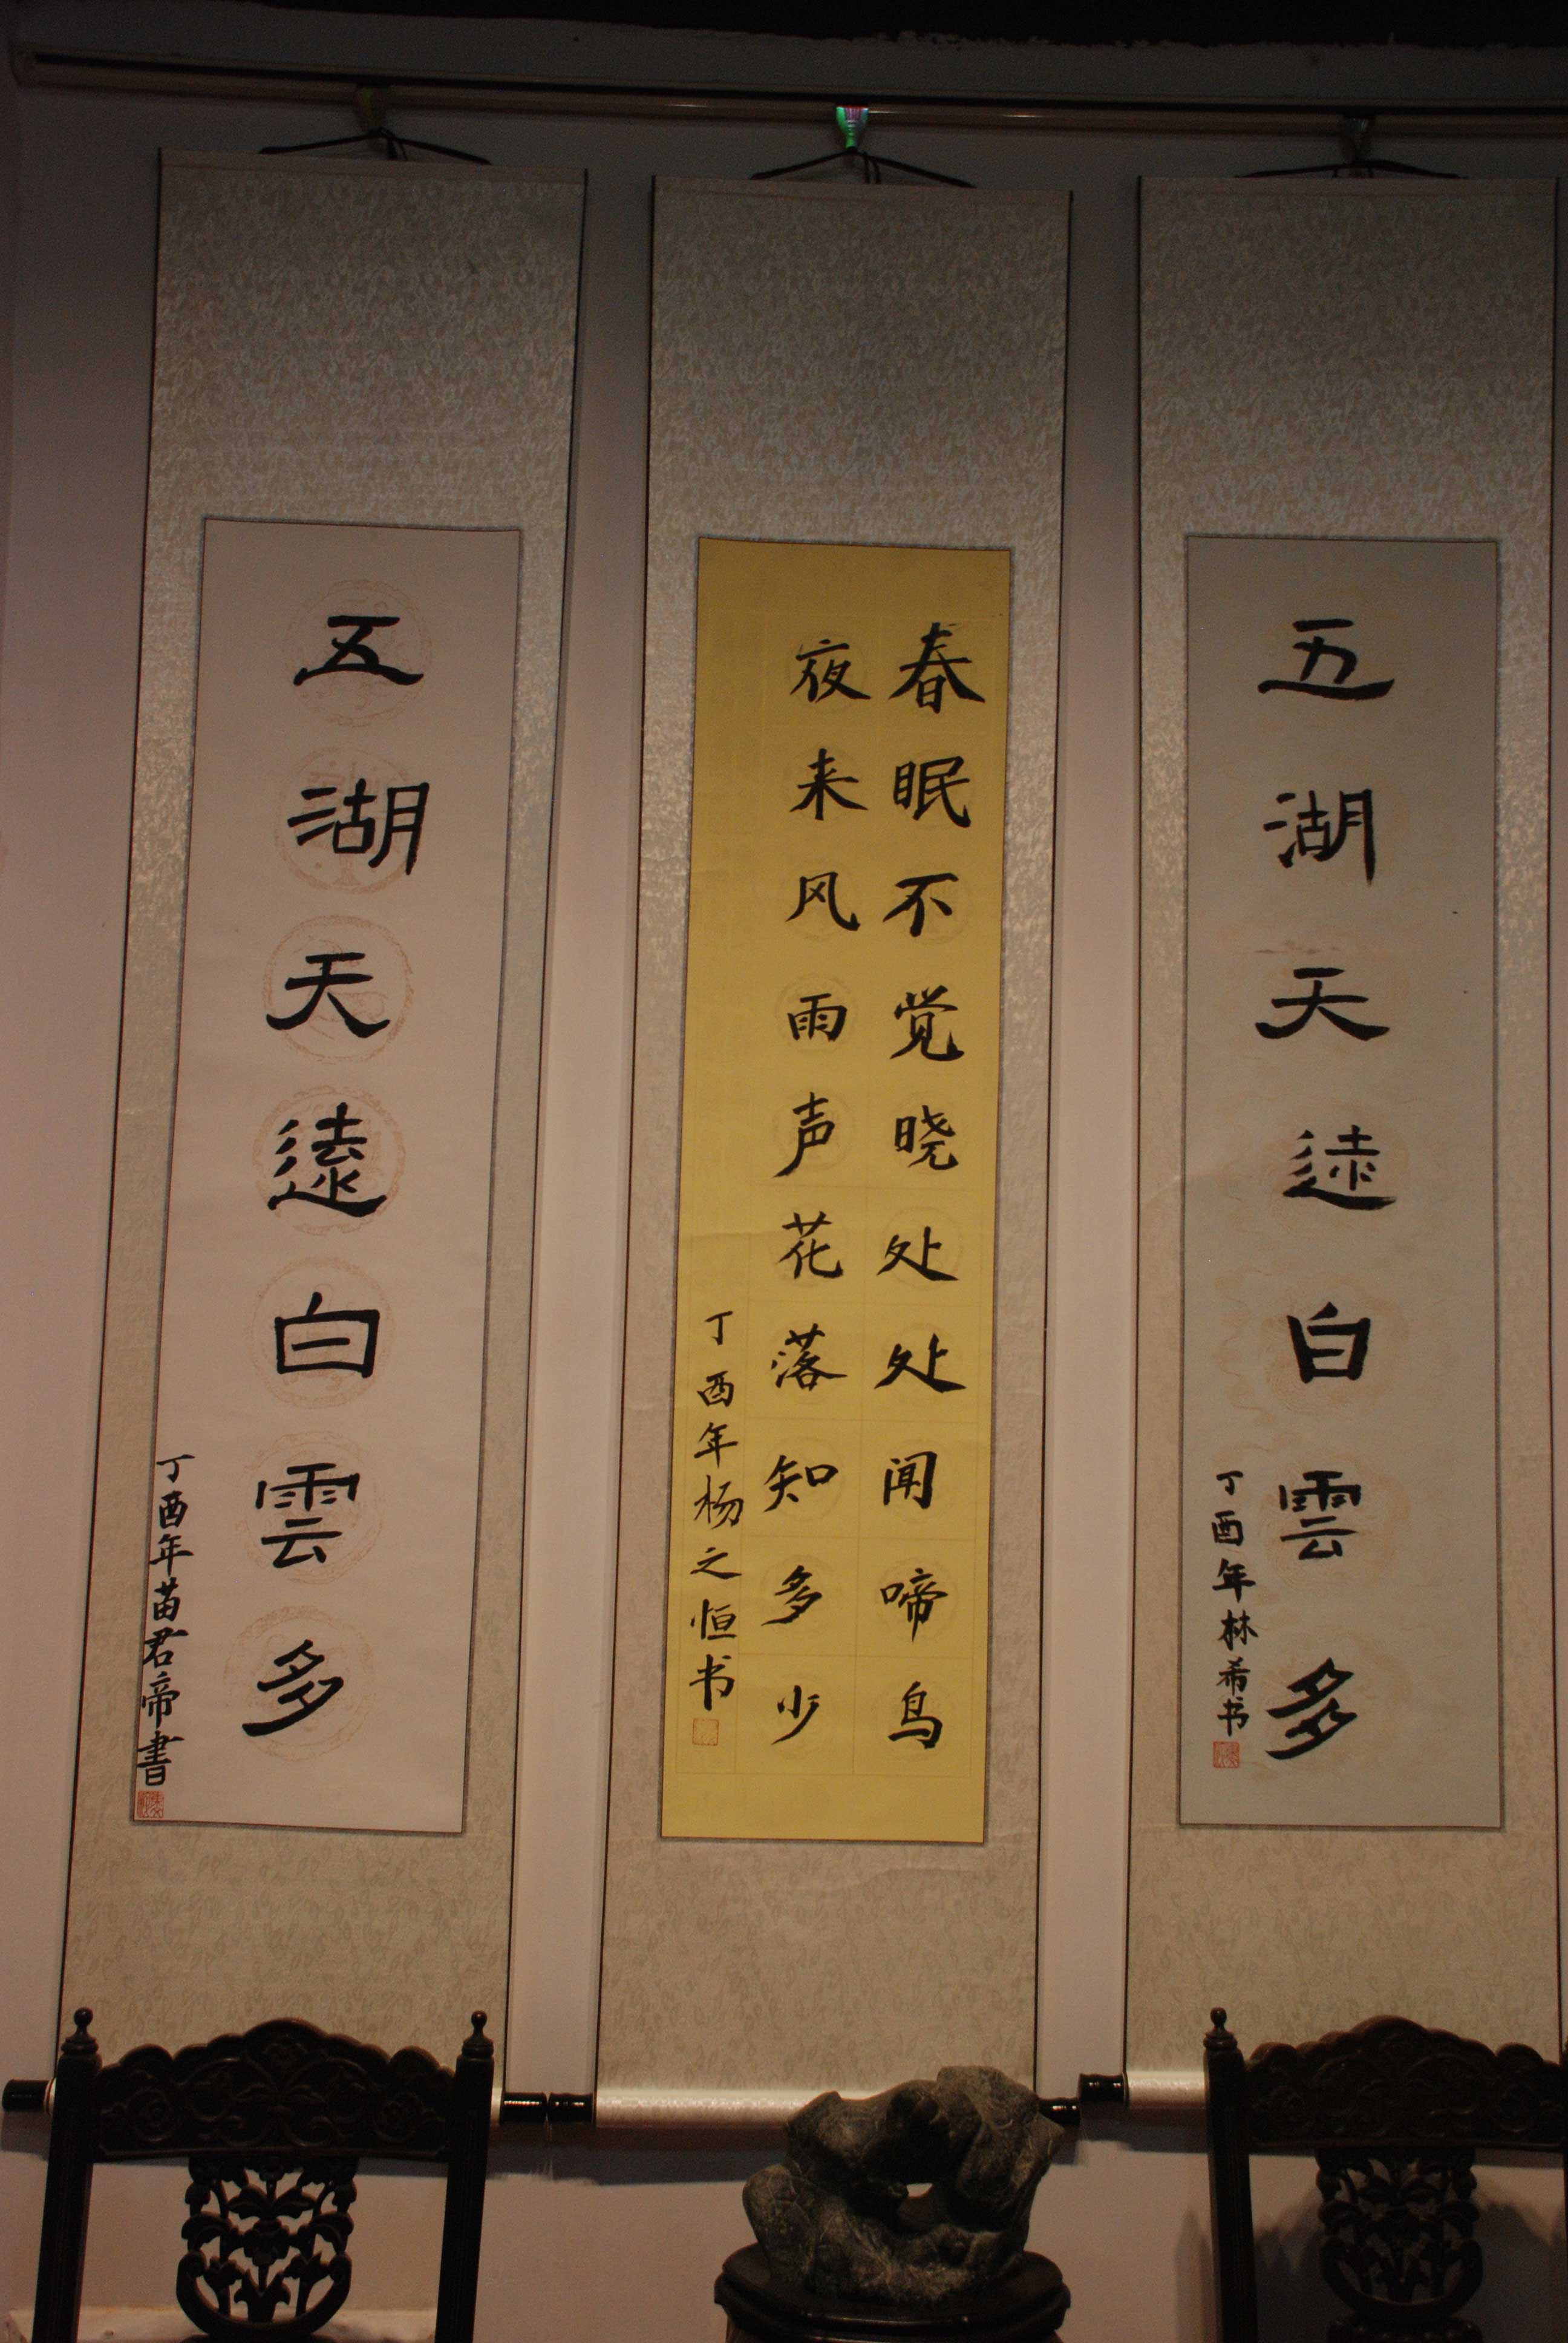 五湖天遠白雲多
丁酉年林希书
春眠不觉晓处处闻啼鸟
夜来风雨声花落知多少
丁酉年杨之恒书
五湖天遠白雲多
丁酉年苗君帝書